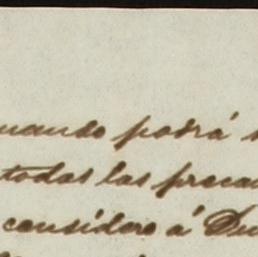 uando podrá
todas las preca
considero á Du